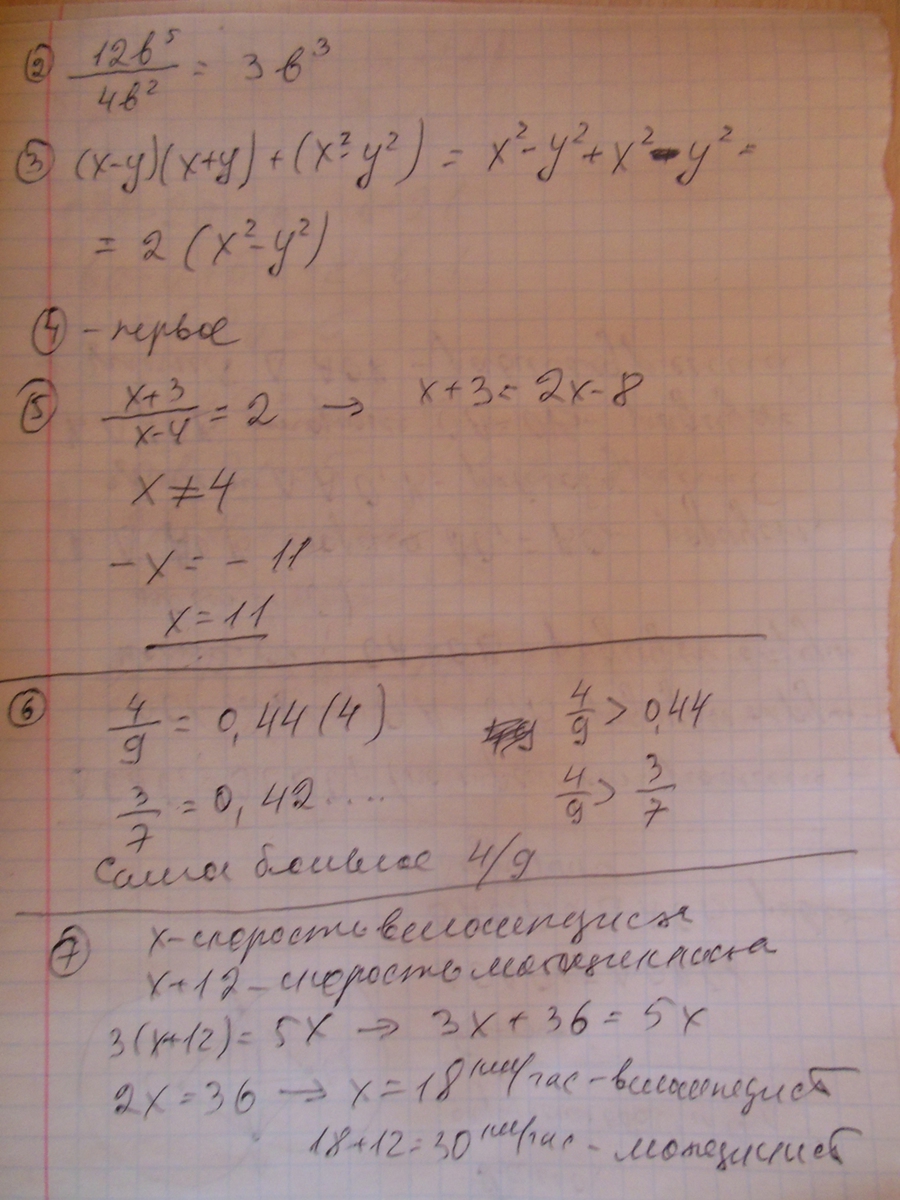 ② 12b⁵/4b² = 3b³
③ (x-y)(x+y) + (x²-y²) = x²-y²+x²-y² =
= 2 (x²-y²)
④ - первое
⑤ x+3/x-4 = 2 → x+3 = 2x-8
x ≠ 4
-x = -11
x = 11
⑥ 4/9 = 0,44(4) 4/9 > 0,44
3/7 = 0,42..... 4/9 > 3/7
Самое большое 4/9
⑦ x-скорость велосипедиста
x+12-скорость мотоциклиста
3(x+12) = 5x → 3x+36 = 5x
2x = 36 → x = 18 км/час - велосипедист
18+12=30 км/час - мотоциклист